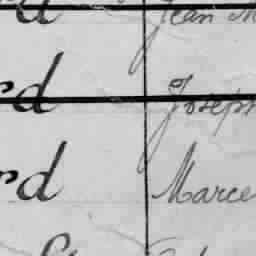 rd Jean M
rd Joseph
rd Marce